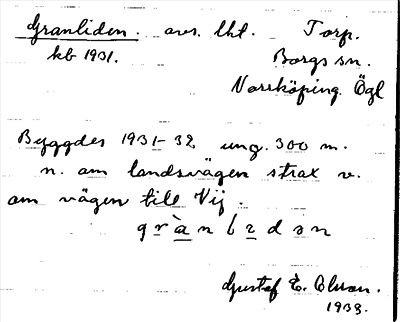 Granliden. avs. lht. Torp.
kb 1931. Borgs sn.
Norrköping Ögl
Byggdes 1931-32 ung. 300 m.
n. om landsvägen strax v.
om vägen till Vij.
Gustaf E. Olsson.
1933.